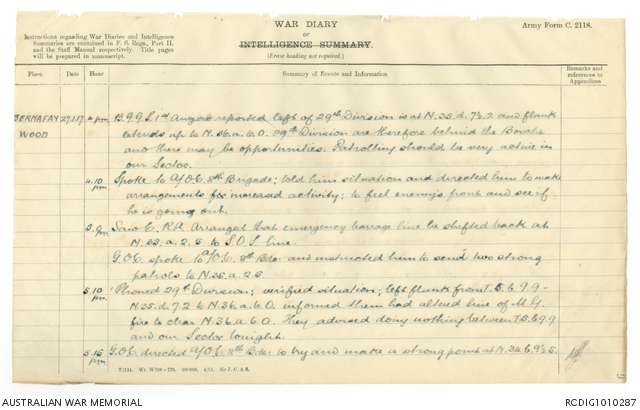 WAR DIARY
or
INTELLIGENCE SUMMARY.
(Erase heading not required.)
Army Form C. 2118.
Instructions regarding War Diaries and Intelligence
Summaries are contained in F. S. Regs., Part II.
and the Staff Manual respectively. Title pages
will be prepared in manuscript.
Place Date Hour Summary of Events and Information Remarks and references to Appendices
BERNAFAY WOOD 4 pm B.G.G.S. 1st Anzac reported left of 29th Division is at N.35.d.7½.2 and flank
extends up to N.36.a.6.0. 29th Division are therefore behind the Boche
and there may be opportunities. Patrolling should be very active in
our Sector.
4.10 pm Spoke to A/O.C. 8th Brigade; told him situation and directed him to make
arrangements for increased activity; to feel enemy's front and see if
he is going out.
5 pm Saw C.R.A. Arranged that emergency barrage line be shifted back at
2.5 to S.O.S. line.
G.O.C. spoke to A/O.C. 8th Bde: and instructed him to send two strong
patrols to N.35.a.2.5.
5.10 pm Phoned 29th Division; verified situation; left flank from T.5.b.9.9 -
N.35.d.7.2 to N.36.a.6.0. informed them had altered line of M.G.
fire to clear N.36.a.6.0. They advised doing nothing between T.5.b.9.9
and our Sector tonight.
5.15 pm G.O.C. directed A/O.C. 8th Bde: to try and make a strong point at
AUSTRALIAN WAR MEMORIAL
RCDIG1010287